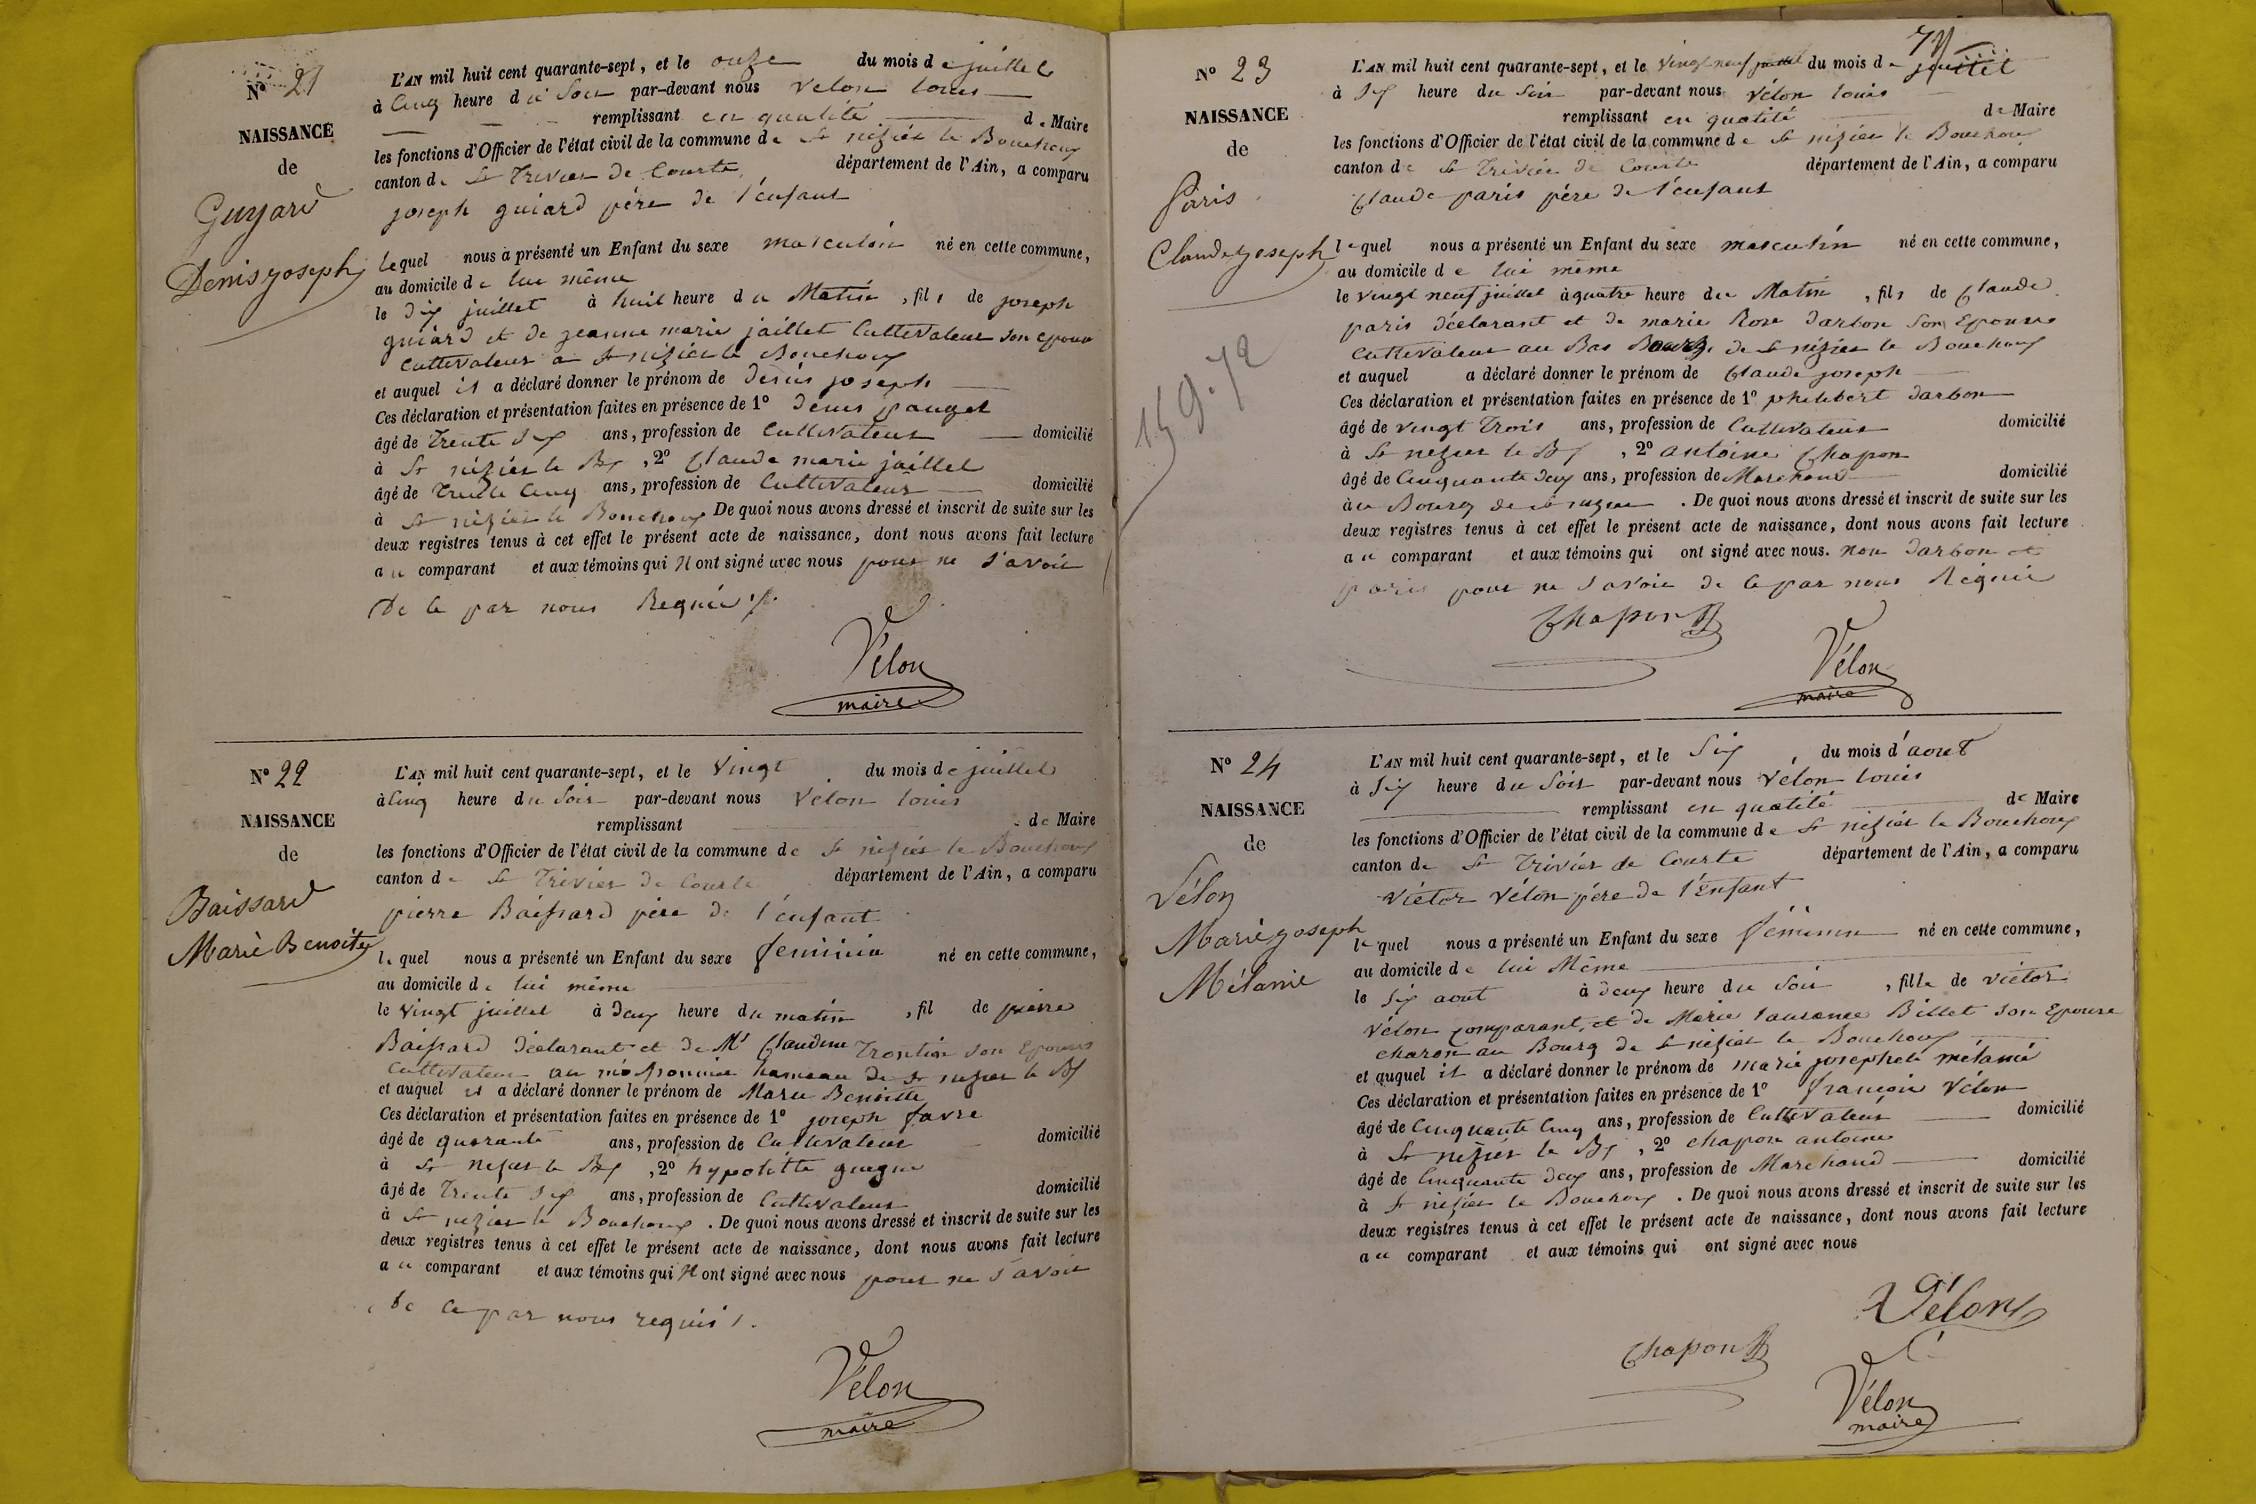 N° 21
NAISSANCE
de
Guyard
Denis joseph
L'AN mil huit cent quarante-sept, et le onze du mois de juillet
à Cinq heure du Soir par-devant nous Velon Louis
remplissant en qualité de Maire
les fonctions d'Officier de l'état civil de la commune de St nizier le Bouchoux
canton de St Trivier de Courte département de l'Ain, a comparu
joseph guiard père de l'enfant
lequel nous a présenté un Enfant du sexe masculin né en cette commune,
au domicile de lui même
le dix juillet à huit heure du Matin, fils de joseph
guiard et de jeanne marie jaillet Cultivateur son epouse
Cultivateur a St nizier le Bouchoux
et auquel il a déclaré donner le prénom de denis joseph
Ces déclaration et présentation faites en présence de 1° denis pauget
âgé de Trente Six ans, profession de Cultivateur domicilié
à St nizier le Bx, 2° Claude marie jaillet
âgé de Trente Cinq ans, profession de Cultivateur domicilié
à St nizier le Bouchoux De quoi nous avons dressé et inscrit de suite sur les
deux registres tenus à cet effet le présent acte de naissance, dont nous avons fait lecture
au comparant et aux témoins qui n ont signé avec nous pour ne Savoir
De ce par nous Requis
Vélon
maire
N° 22
NAISSANCE
de
Baissard
Marie Benoite
L'AN mil huit cent quarante-sept, et le Vingt du mois de juillet
à Cinq heure du Soir par-devant nous Velon Louis
remplissant de Maire
les fonctions d'Officier de l'état civil de la commune de St nizier le Bouchoux
canton de St Trivier de Courte département de l'Ain, a comparu
pierre Baissard père de l'enfant
lequel nous a présenté un Enfant du sexe feminin né en cette commune,
au domicile de lui même
le vingt juillet à deux heure du matin, fil de pierre
Baissard déclarant et de Me Claudine son Epouse
Cultivateur au hameau de St nizier le Bx
et auquel il a déclaré donner le prénom de Marie Benoitte
Ces déclaration et présentation faites en présence de 1° joseph favre
âgé de quarante ans, profession de Cultivateur domicilié
à St nizier le Bx, 2° hypolitte
âgé de Trente Six ans, profession de Cultivateur domicilié
à St nizier le Bouchoux. De quoi nous avons dressé et inscrit de suite sur les
deux registres tenus à cet effet le présent acte de naissance, dont nous avons fait lecture
au comparant et aux témoins qui n ont signé avec nous pour ne Savoir
de ce par nous requis.
Vélon
maire
N° 23
NAISSANCE
de
Paris
Claude joseph
L'AN mil huit cent quarante-sept, et le vingt neuf juillet du mois de juillet
à Six heure du Soir par-devant nous Vélon Louis
remplissant en qualité de Maire
les fonctions d'Officier de l'état civil de la commune de St nizier le Bouchoux
canton de St Trivier de Courte département de l'Ain, a comparu
Claude paris père de l'enfant
lequel nous a présenté un Enfant du sexe masculin né en cette commune,
au domicile de lui même
le vingt neuf juillet à quatre heure du Matin, fils de Claude
paris déclarant et de marie Rose darbon Son Epouse
Cultivateur au Bas Bourg de St nizier le Bouchoux
et auquel a déclaré donner le prénom de Claude joseph
Ces déclaration et présentation faites en présence de 1° philibert darbon
âgé de vingt Trois ans, profession de Cultivateur domicilié
à St nizier le Bx, 2° antoine Chapon
âgé de Cinquante deux ans, profession de Marchand domicilié
à au Bourg de St nizier. De quoi nous avons dressé et inscrit de suite sur les
deux registres tenus à cet effet le présent acte de naissance, dont nous avons fait lecture
au comparant et aux témoins qui ont signé avec nous. non darbon et
paris pour ne Savoir de ce par nous Requis
Chapon
Vélon
maire
N° 24
NAISSANCE
de
Vélon
Marie joseph
Mélanie
L'AN mil huit cent quarante-sept, et le Six du mois d'aout
à Six heure du Soir par-devant nous Vélon Louis
remplissant en qualité de Maire
les fonctions d'Officier de l'état civil de la commune de St nizier le Bouchoux
canton de St Trivier de Courte département de l'Ain, a comparu
Victor Vélon père de l'Enfant
lequel nous a présenté un Enfant du sexe féminin né en cette commune,
au domicile de lui Même
le Six aout à deux heure du Soir, fille de Victor
Vélon comparant, et de Marie Laurence Billet son Epouse
charon au Bourg de St nizier le Bouchoux
et auquel il a déclaré donner le prénom de marie josephete mélanie
Ces déclaration et présentation faites en présence de 1° françois Vélon
âgé de Cinquante Cinq ans, profession de Cultivateur domicilié
à St nizier le Bx, 2° Chapon antoine
âgé de Cinquante deux ans, profession de Marchand domicilié
à St nizier le Bouchoux. De quoi nous avons dressé et inscrit de suite sur les
deux registres tenus à cet effet le présent acte de naissance, dont nous avons fait lecture
au comparant et aux témoins qui ont signé avec nous
Vélon
Chapon
Vélon
maire